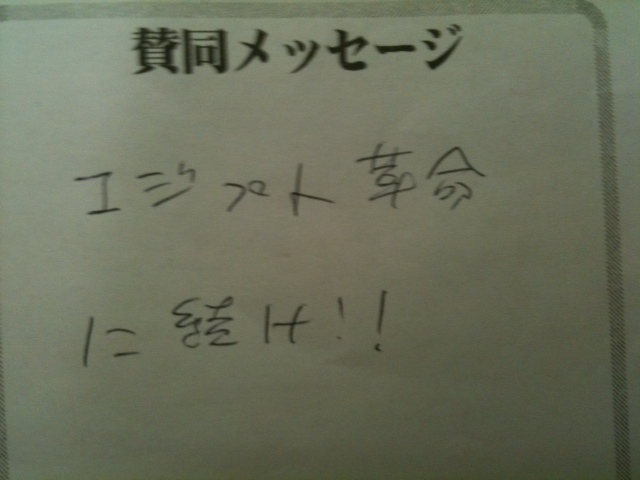 賛同メッセージ
エジプト革命
に続け!!